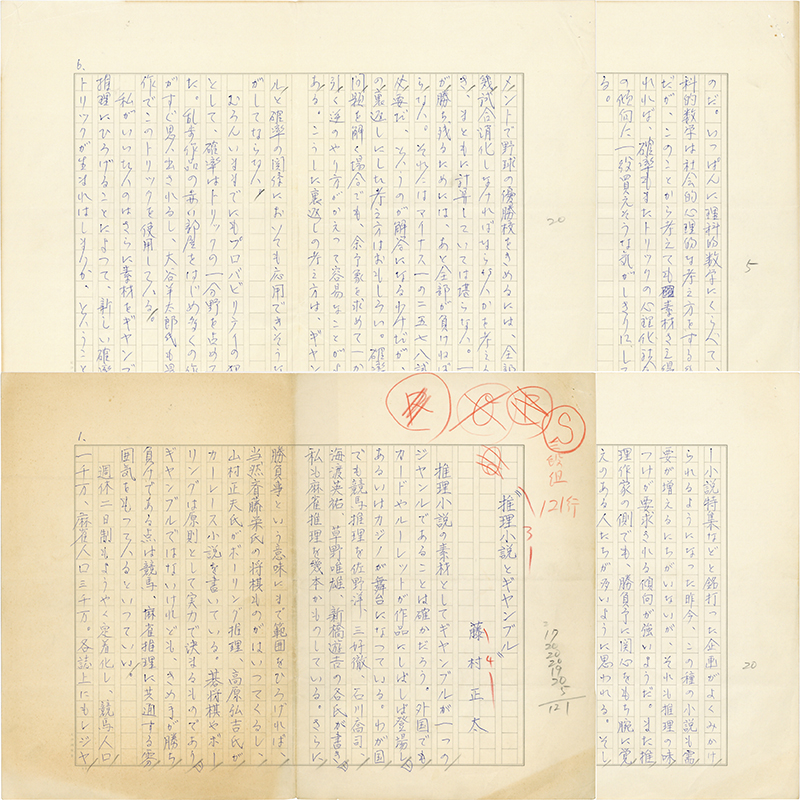 のだ。いっぱんに理科的数学にくらべて、
科的数学は社会的心理的な考え方をする
だが、このことから考えても素材さえ
れれば、確率もまたトリックの心理化
の傾向に一役買えそうな気がしきりにし
る。
5
6.
メントで野球の優勝校をきめるには、全部
幾試合消化しなければならないかを考える
き、まともに計算していては堪らない。一
が勝ち残るためには、あと全部が負ければ
らない。それにはマイナス一の二五七八試
必要だ、というのが解答になるわけだが、
の裏返しにした考え方はおもしろい。確率
問題を解く場合でも、余事象を求めて一か
引く逆のやり方がかえって容易なことがよ
ある。こうした裏返しの考え方は、ギャン
ルと確率の関係においても応用できそうな
がしてならない。
むろんいままでにもプロバビリティの犯
として、確率はトリックの一分野を占めて
た。乱歩作品の赤い部屋をはじめ多くの作
がすぐ思い出されるし、大谷羊太郎氏も
作でこのトリックを使用している。
私がいいたいのはさらに素材をギャンブ
推理にひろげることによって、新しい確率
トリックが生まれはしまいか、ということ
20
ー小説特集などと銘打った企画がよくみかけ
られるようになった昨今、この種の小説も需
要が増えるにちがいないが、それも推理の味
つけが要求される傾向が強いようだ。また推
理作家の側でも、勝負ごとに関心をもち腕に覚
えのある人たちが多いように思われる。そし
20
1.
S
121行
3
推理小説とギャンブル
4
藤村正太
推理小説の素材としてギャンブルが一つの
ジャンルであることは確かだろう。外国でも
カードやルーレットが作品にしばしば登場し
あるいはカジノが舞台になっている。わが国
でも競馬推理を佐野洋、三好徹、石川喬司、
海渡英祐、草野唯雄、新橋遊吉の各氏が書き
私も麻雀推理を幾本かものしている。さらに
勝負事という意味にまで範囲をひろげれば
当然斎藤栄氏の将棋ものがはいってくるし、
山村正夫氏がボーリング推理、高原弘吉氏が
カーレース小説を書いている。碁将棋やボー
リングは原則として実力で決まるものであり
ギャンブルではないけれども、きめ手が勝ち
負けである点は競馬、麻雀推理に共通する雰
囲気をもっているといっていい。
週休二日制もようやく定着化し、競馬人口
一千万、麻雀人口三千万。各誌上にもレジャ
17
20
20
20
19
20
5
121